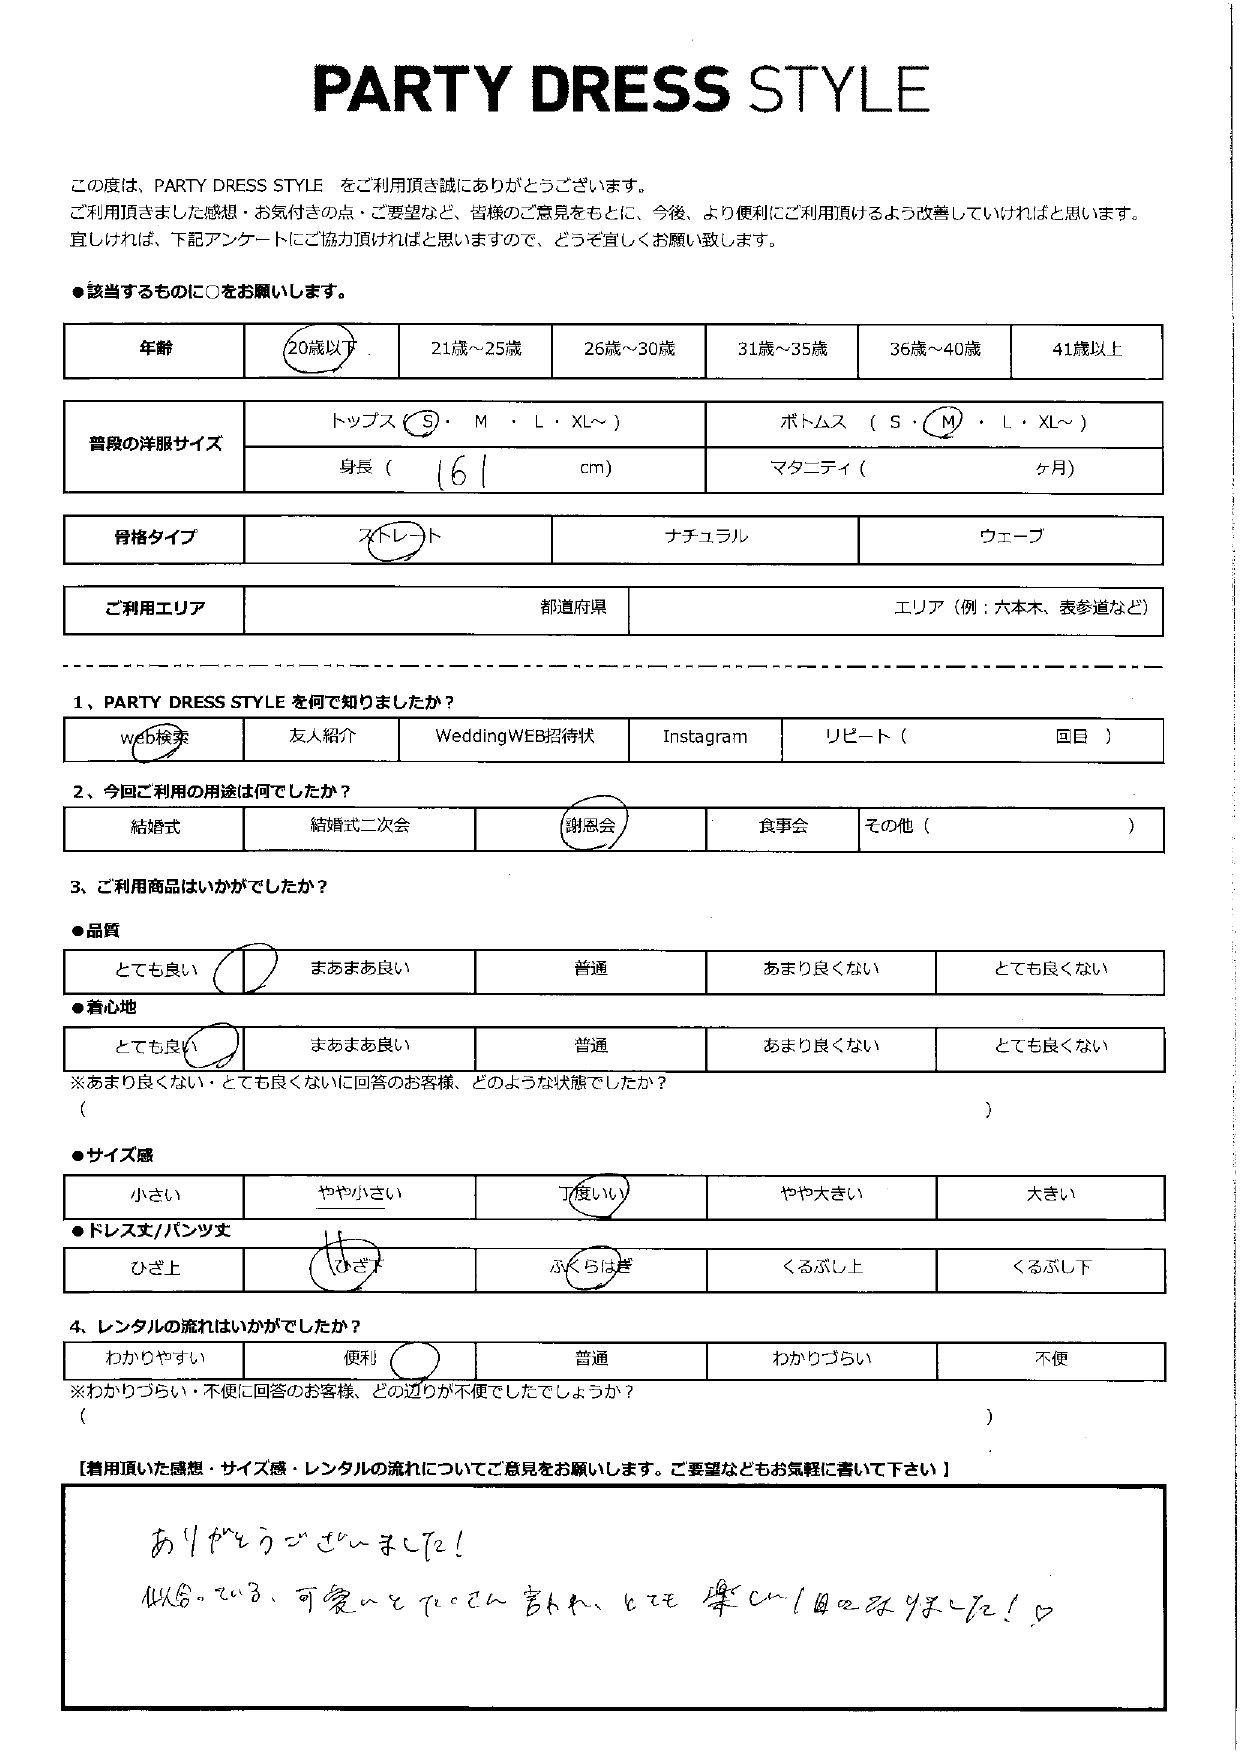 PARTY DRESS STYLE
この度は、PARTY DRESS STYLE　をご利用頂き誠にありがとうございます。
ご利用頂きました感想・お気付きの点・ご要望など、皆様のご意見をもとに、今後、より便利にご利用頂けるよう改善していければと思います。
宜しければ、下記アンケートにご協力頂ければと思いますので、どうぞ宜しくお願い致します。
●該当するものに○をお願いします。
年齢 20歳以下 21歳～25歳 26歳～30歳 31歳～35歳 36歳～40歳 41歳以上
普段の洋服サイズ
トップス ( S ・ M ・ L ・ XL～ ) ボトムス ( S ・ M ・ L ・ XL～ )
身長 ( 161 cm) マタニティ ( ヶ月)
骨格タイプ ストレート ナチュラル ウェーブ
ご利用エリア 都道府県 エリア（例：六本木、表参道など）
1、PARTY DRESS STYLE を何で知りましたか？
web検索 友人紹介 WeddingWEB招待状 Instagram リピート ( 回目 )
2、今回ご利用の用途は何でしたか？
結婚式 結婚式二次会 謝恩会 食事会 その他 ( )
3、ご利用商品はいかがでしたか？
●品質
とても良い まあまあ良い 普通 あまり良くない とても良くない
●着心地
とても良い まあまあ良い 普通 あまり良くない とても良くない
※あまり良くない・とても良くないに回答のお客様、どのような状態でしたか？
( )
●サイズ感
小さい やや小さい 丁度いい やや大きい 大きい
●ドレス丈/パンツ丈
ひざ上 ひざ下 ふくらはぎ くるぶし上 くるぶし下
4、レンタルの流れはいかがでしたか？
わかりやすい 便利 普通 わかりづらい 不便
※わかりづらい・不便に回答のお客様、どの辺りが不便でしたでしょうか？
( )
【着用頂いた感想・サイズ感・レンタルの流れについてご意見をお願いします。ご要望などもお気軽に書いて下さい 】
ありがとうございました!
似合っている、可愛いとたくさん言われ、とても楽しい1日になりました!♡